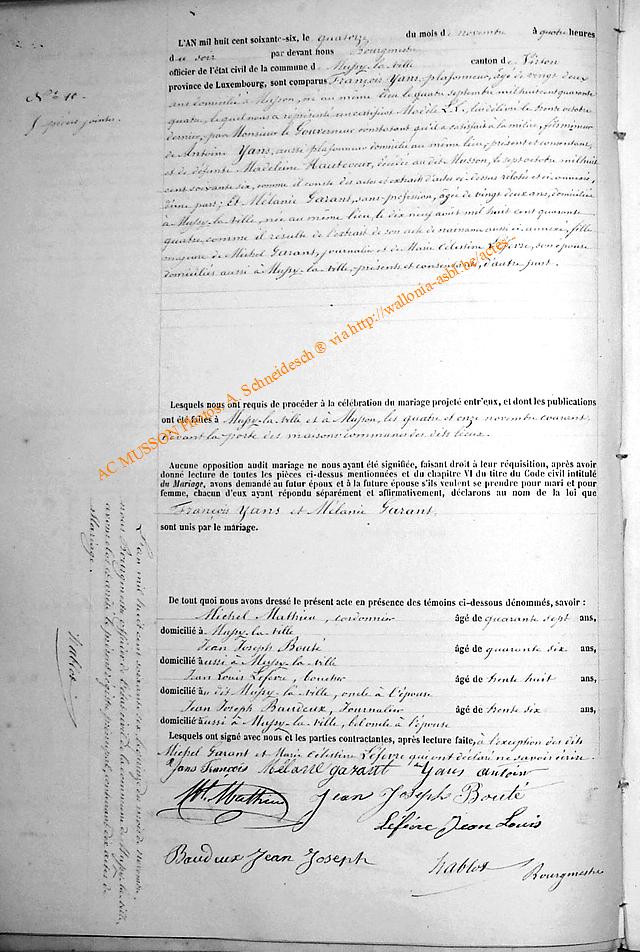 L'AN mil huit cent soixante-six, le quatorze du mois de novembre à quatre heures
du soir par devant nous Bourgmestre
officier de l'état civil de la commune de Mussy-la-ville canton de Virton
province de Luxembourg, sont comparus François Yans, plafonneur, âgé de vingt deux
ans domicilié à Musson, né au même lieu le quatre septembre mil huit cent quarante
quatre, lequel nous a représenté un certificat Modèle L.L. lui délivré le trente octobre
dernier, par Monsieur le Gouverneur constatant qu'il a satisfait à la milice, fils mineur
de Antoine Yans, aussi plafonneur domicilié au même lieu, présent et consentant,
et de défunte Madeleine Hautcoeur, décédée au dit Musson, le sept octobre mil huit
cent soixante six, comme il conste des actes et extraits d'actes ci-dessus relatés et ci annexés,
d'une part; Et Mélanie Garant, sans profession, âgée de vingt deux ans, domiciliée
à Mussy-la-ville, née au même lieu, le dix neuf août mil huit cent quarante
quatre, comme il résulte de l'extrait de son acte de naissance aussi ci annexé, fille
majeure de Michel Garant, journalier et de Marie Célestine Lefèvre, son épouse
domiciliés aussi à Mussy-la-ville, présents et consentants, d'autre part.
N° 10.
5 pièces jointes.
Lesquels nous ont requis de procéder à la célébration du mariage projeté entr'eux, et dont les publications
ont été faites à Mussy-la-ville et à Musson, les quatre et onze novembre courant
devant la porte des maisons communes des dits lieux.
Aucune opposition audit mariage ne nous ayant été signifiée, faisant droit à leur réquisition, après avoir
donné lecture de toutes les pièces ci-dessus mentionnées et du chapitre VI du titre du Code civil intitulé
du Mariage, avons demandé au futur époux et à la future épouse s'ils veulent se prendre pour mari et pour
femme, chacun d'eux ayant répondu séparément et affirmativement, déclarons au nom de la loi que
François Yans et Mélanie Garant
sont unis par le mariage.
De tout quoi nous avons dressé le présent acte en présence des témoins ci-dessous dénommés, savoir :
Michel Mathieu, cordonnier âgé de quarante sept ans,
domicilié à Mussy-la-ville
Jean Joseph Bouté âgé de quarante six ans,
domicilié aussi à Mussy-la-ville
Jean Louis Lefèvre, boucher âgé de trente huit ans,
domicilié au dit Mussy-la-ville, oncle à l'épouse
Jean Joseph Baudeux, Journalier âgé de trente six ans,
domicilié aussi à Mussy-la-ville, bel oncle à l'épouse
Lesquels ont signé avec nous et les parties contractantes, après lecture faite, à l'exception des dits
Michel Garant et Marie Célestine Lefèvre qui ont déclaré ne savoir écrire
Yans François Mélanie garant Yans antoin
M. Mathieu Jean Joseph Bouté
Lefèvre Jean Louis
Baudeux Jean Joseph Nablot Bourgmestre
L'an mil huit cent soixante six le du mois de novembre,
nous Bourgmestre officier de l'état civil de la commune de Mussy-la-ville,
avons clos et arrêté le présent registre principal, contenant dix actes de
Mariage.
Nablot
AC MUSSON Photos: A. Schneidesch ® via http://wallonia-asbl.be/actes--